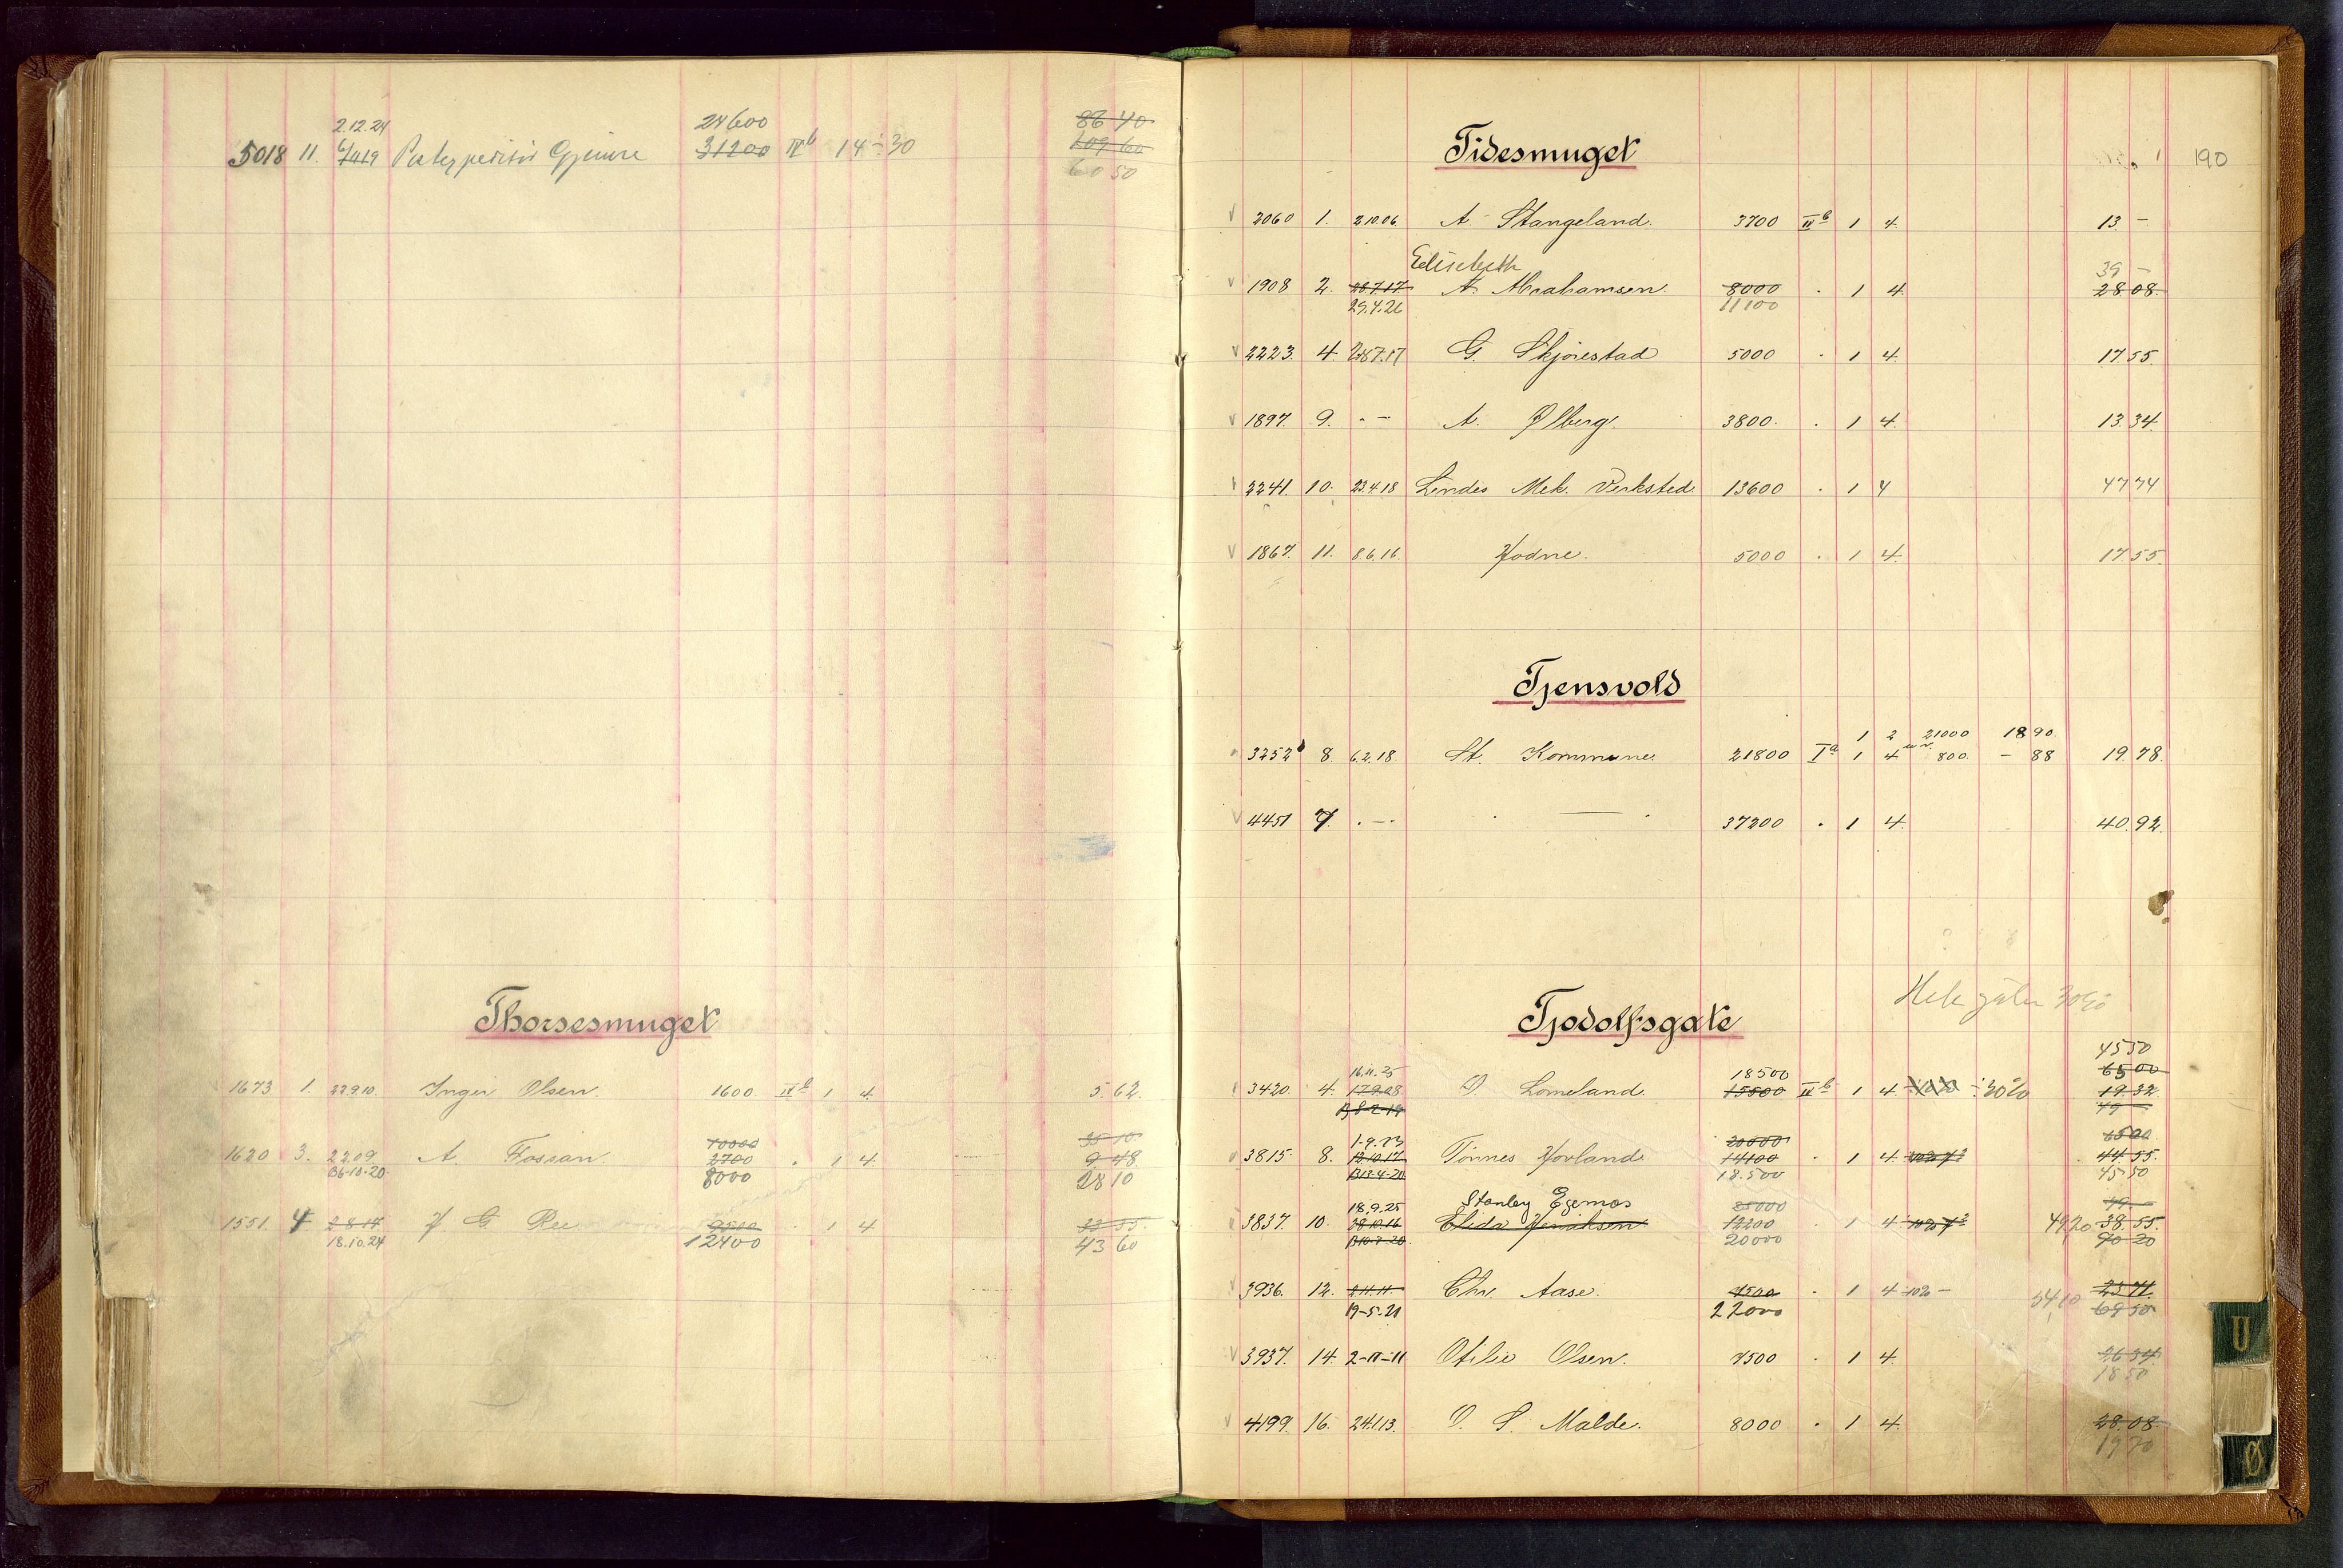 2.12.24 24600 86 40
5018 11. 31200 IVb 14 ÷ 30 109 60
60 50
Thorsesmuget
1673 1. 22.9.10. Inger Olsen. 1600. IVb 1 4. 5.62.
10000 35 10
1620 3. 2.2.09. A. Fossan. 2700 . 1 4. 9.48
B6-10-20 8000 28 10
1551. 4 2.8.17 J. G. Ree 9500 . 1 4 33 35
18.10.24 12400 43 60
Tidesmuget
190
2060 1. 2.10.06. A. Stangeland. 3700 IVb 1 4. 13 -
Elisabeth 39 -
1908 2. 28.7.17 A. Abrahamsen 8000 . 1 4. 28.08.
29.4.26 11100
2223. 4. 28.7.17 G. Skjørestad 5000 . 1 4. 17.55.
1897. 9. . - A. Ølberg. 3800. . 1 4. 13.34.
2241. 10. 23.4.18 Lindes Mek. Verksted. 13600 . 1 4 47.74
1867. 11. 8.6.16. Hodne. 5000 . 1 4. 17.55.
Tjensvold
1 2 21000 18 90.
3252 8. 6.2.18. St. Kommune. 21800 Ia 1 4 800. - 88 19.78.
4451 7. . - . . — . 37200 . 1 4. 40.92.
Tjodolfsgate
45 50
16.11.25 18500 65 00
3420. 4. 17.9.08 O. Lomeland. 15500 IVb 1 4. ÷ 30% 19.32
49 -
1-9.23 20000 65 00
3815. 8. 19.10.17 Tønnes Hovland. 14100 . 1 4. 44.55.
B13-4-20 18.500 45 50
18.9.25 Stanley Egenæs 25000 49. -
3837. 10. 28.10.16 Elida Henriksen 12200 . 1 4 49 20 38.55.
20000 70 20
3936. 12. 2.11.11. Chr. Aase. 7500 . 1 4 10% - 54 10
19-5-21 22000 69 50
3937. 14. 2-11-11 Otilie Olsen. 7500 . 1 4. 26 34
18 50
4199. 16. 24.1.13. O. S. Malde. 8000 . 1 4. 28.08.
19 70
U
Ø